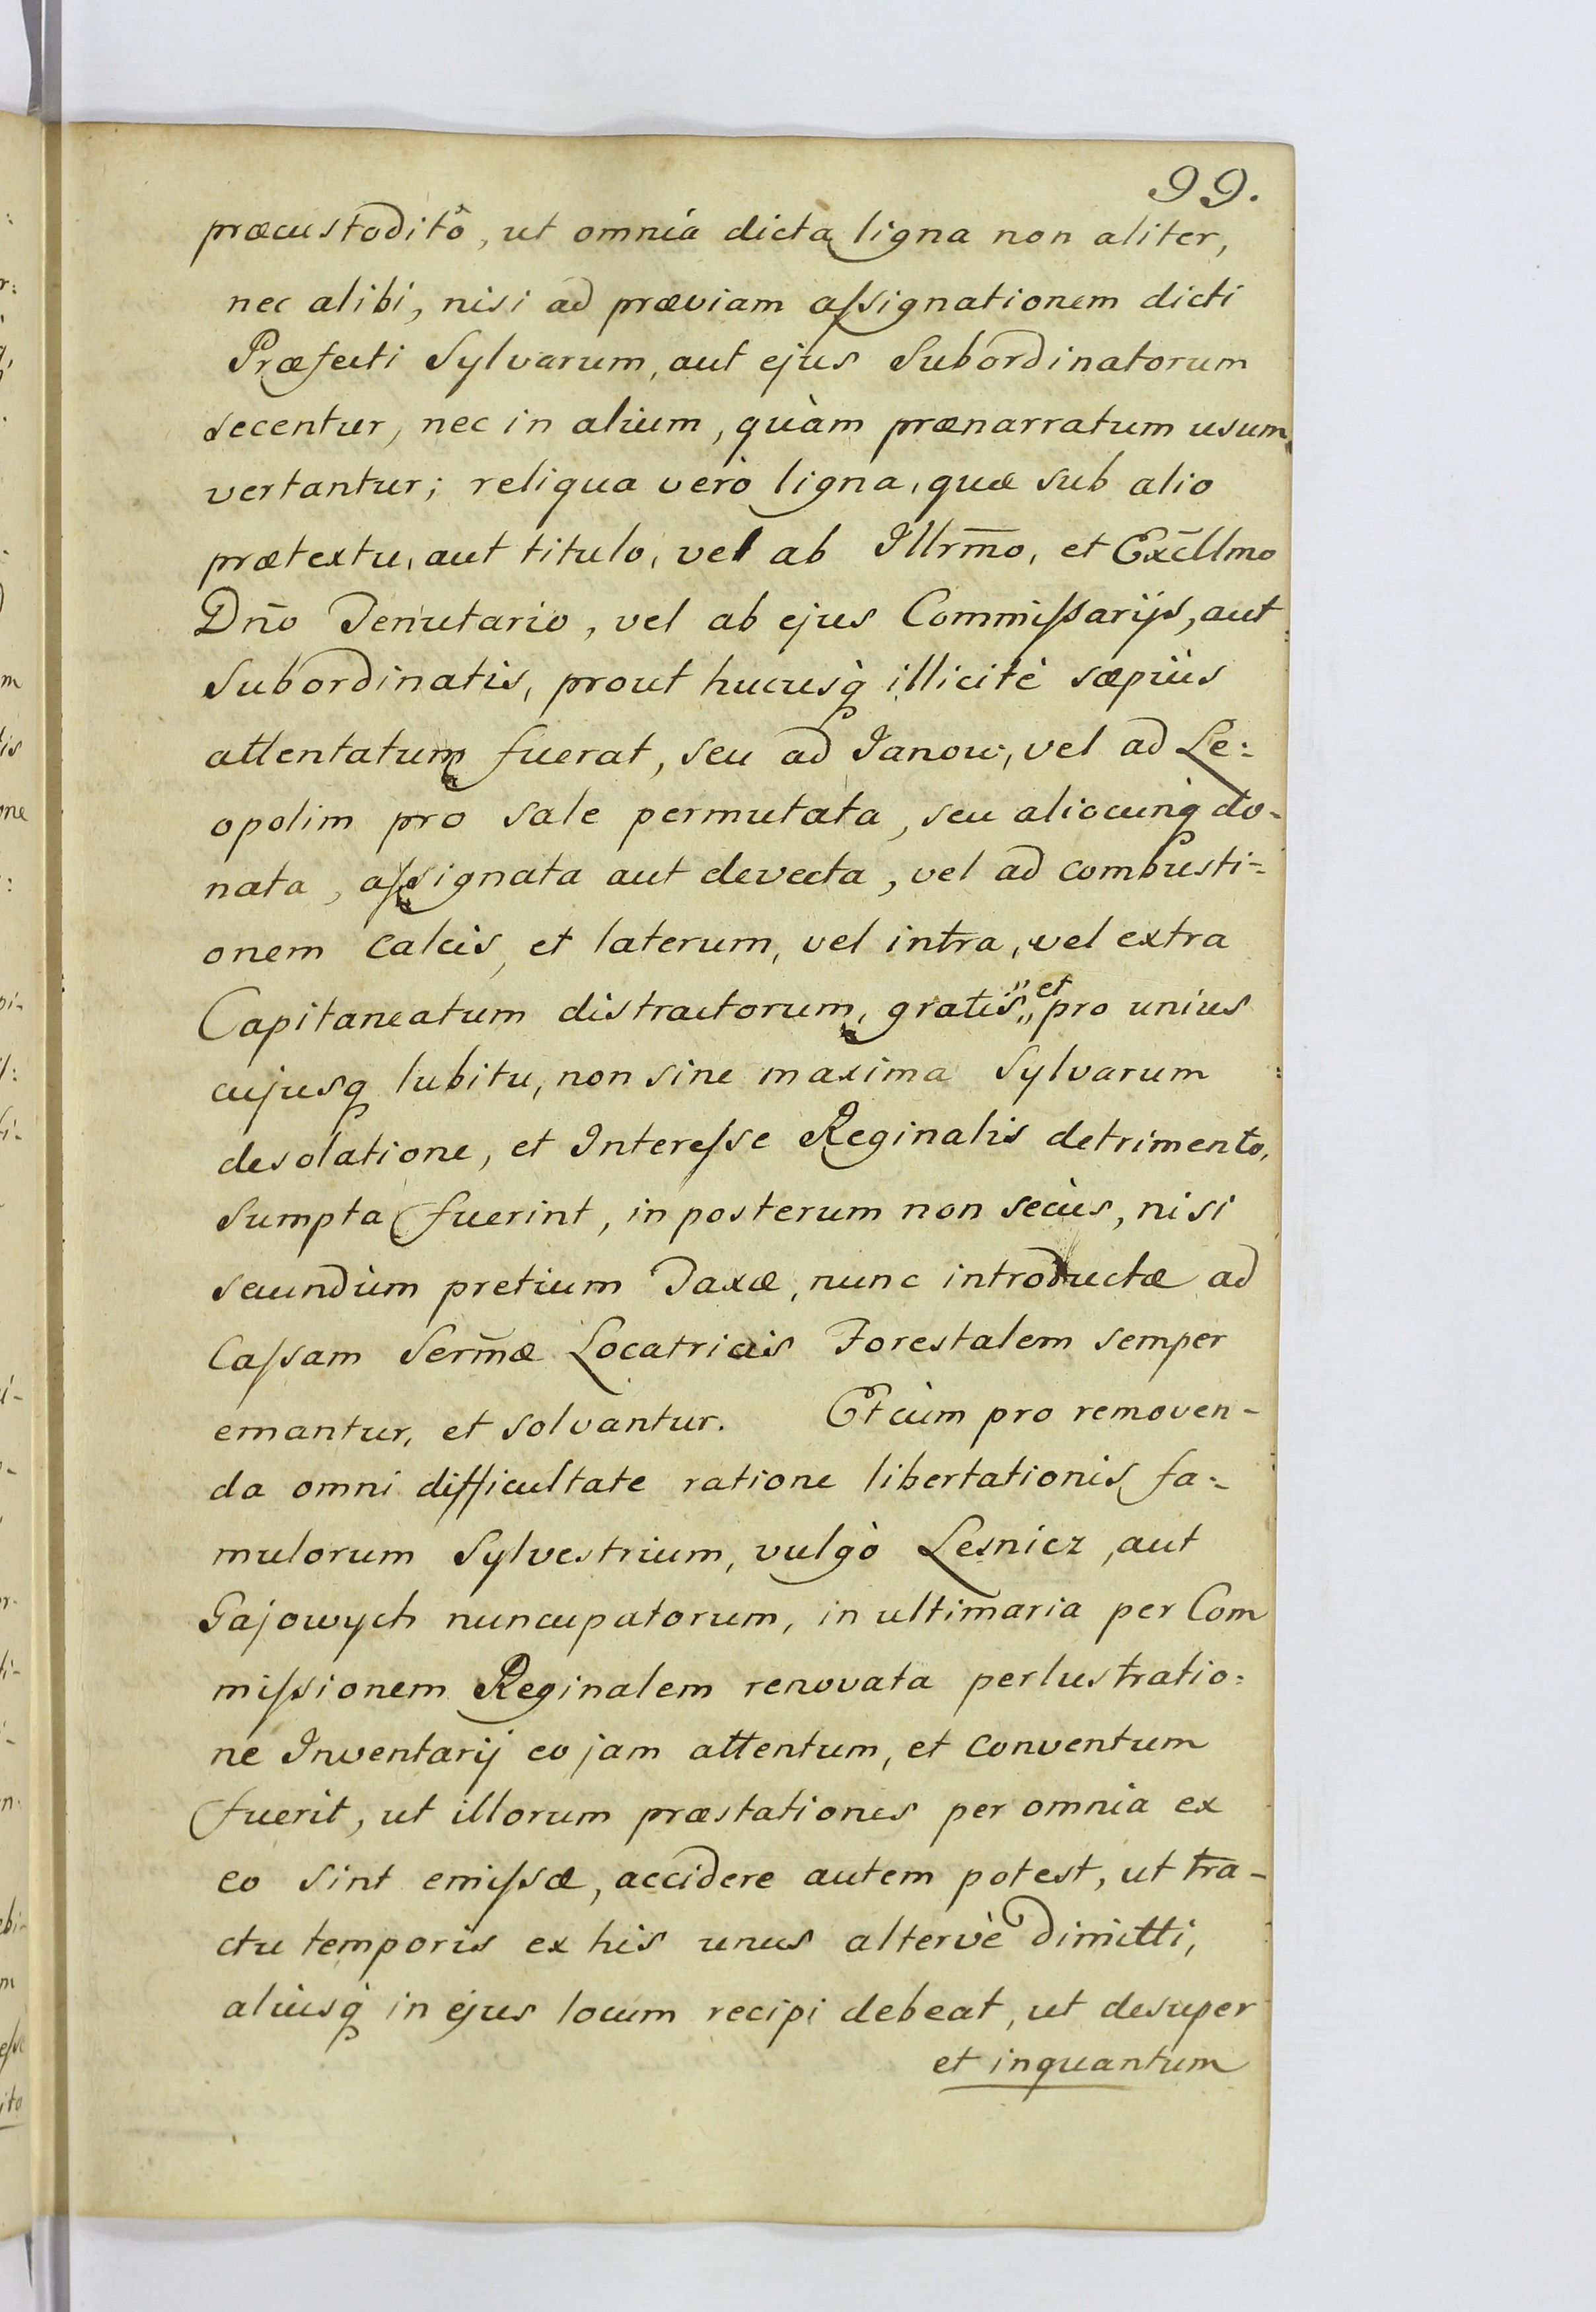 99.
præcustoditô, ut omnia dicta ligna non aliter,
nec alibi, nisi ad præviam aſsignationem dicti
Præfecti Sylvarum, aut ejus Subordinatorum
secentur, nec in alium, quàm prænarratum usum
vertantur; reliqua verò ligna, quæ sub alio
prætextu, aut titulo, vel ab Illrm̄o, et Exc̄llmo
Dn̄o Tenutario, vel ab ejus Commiſsarijs, aut
Subordinatis, prout hucusq̀ illicitè sæpiùs
attentatum fuerat, seu ad Janow, vel ad Le:
opolim pro sale permutata, seu aliocunq̀ do-
nata, aſsignata aut devecta, vel ad combusti=
onem calcis, et laterum, vel intra, vel extra
Capitaneatum distractorum, gratis,, et pro unius
cujusq lubitu, non sine maxima Sylvarum
desolatione, et Intereſse Reginalis detrimento,
Sumpta fuerint, in posterum non secùs, nisi
secundùm pretium Taxæ, nunc introductæ ad
Caſsam Serm̄æ Locatricis Forestalem semper
emantur, et solvantur. Et cùm pro removen-
da omni difficultate ratione libertationis fa:
mulorum Sylvestrium, vulgò Lesnicz, aut
Gajowych nuncupatorum, in ultimaria per Com
miſsionem Reginalem renovata perlustratio:
ne Inventarij eo jam attentum, et conventum
fuerit, ut illorum præstationes per omnia ex
eo sint emiſsæ, accidere autem potest, ut tra-
ctu temporis ex his unus altervè dimitti,
aliusq̀ in ejus locum recipi debeat, ut desuper
et inquantum